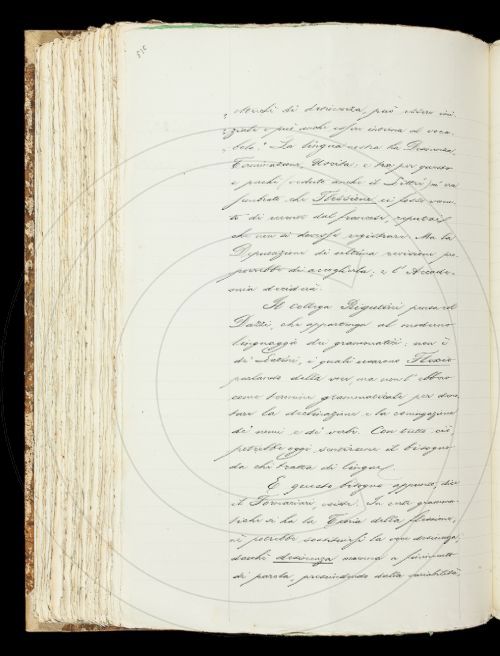 " di desinenza, può essere ini-
" ziale e può anche esser interna al voca-
" bolo." La lingua nostra ha Desinenza,
Terminazione, Uscita: e sia per questo
e perchè, veduto anche il Littré, m'era
sembrato che Flessione ci fosse venu-
to di recente dal francese, reputai
che non si dovesse registrare. Ma la
Deputazione di ultima revisione pro-
porrebbe di accoglierla; e l'Accade-
mia deciderà.
Il collega Rigutini pensa col
Dazzi, che appartenga al moderno
linguaggio dei grammatici; non è
di Latini, i quali usarono Flexio
parlando della voce, ma non l'ebbero
come termine grammaticale per deno-
tare la declinazione e la coniugazione
de' nomi e de' verbi. Con tutto ciò,
potrebbe oggi sentirsene il bisogno
da chi tratta di lingue.
E questo bisogno appunto, dice
il Tornaciari, esiste. In certe gramma-
tiche si ha la Teoria della flessione,
nè potrebbe sostituirsi la voce desinenza;
dacchè desinenza accenna a finimento
di parola prescindendo dalla variabilità,